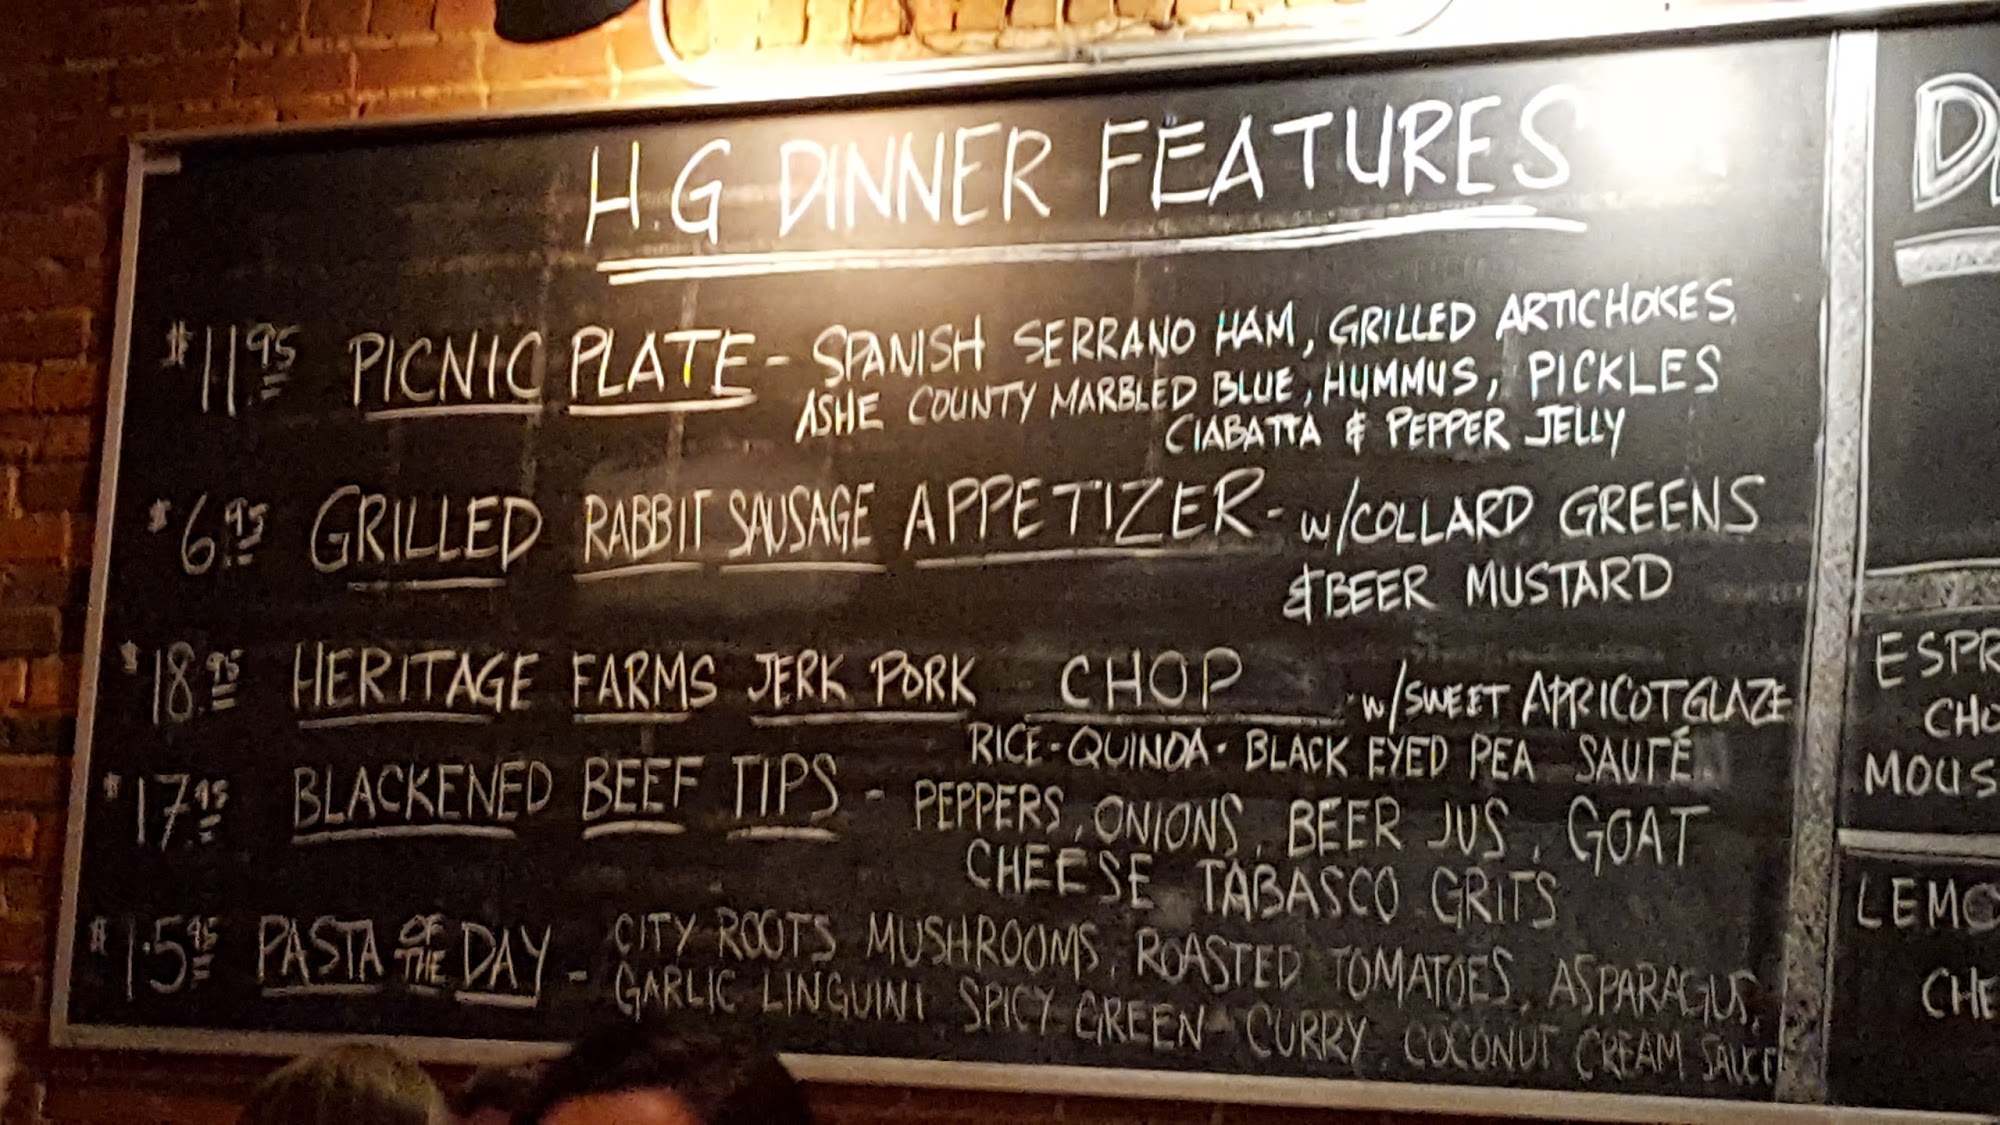 H.G DINNER FEATURES
$11.95 PICNIC PLATE - SPANISH SERRANO HAM, GRILLED ARTICHOKES,
ASHE COUNTY MARBLED BLUE, HUMMUS, PICKLES
CIABATTA & PEPPER JELLY
$6.95 GRILLED RABBIT SAUSAGE APPETIZER - w/COLLARD GREENS
& BEER MUSTARD
$18.95 HERITAGE FARMS JERK PORK CHOP w/SWEET APRICOT GLAZE
RICE-QUINOA-BLACK EYED PEA SAUTÉ
$17.95 BLACKENED BEEF TIPS - PEPPERS, ONIONS, BEER JUS, GOAT
CHEESE TABASCO GRITS
$15.95 PASTA OF THE DAY - CITY ROOTS MUSHROOMS, ROASTED TOMATOES, ASPARAGUS,
GARLIC LINGUINI SPICY GREEN CURRY COCONUT CREAM SAUCE
ESPR
CHO
MOUS
LEMO
CHE